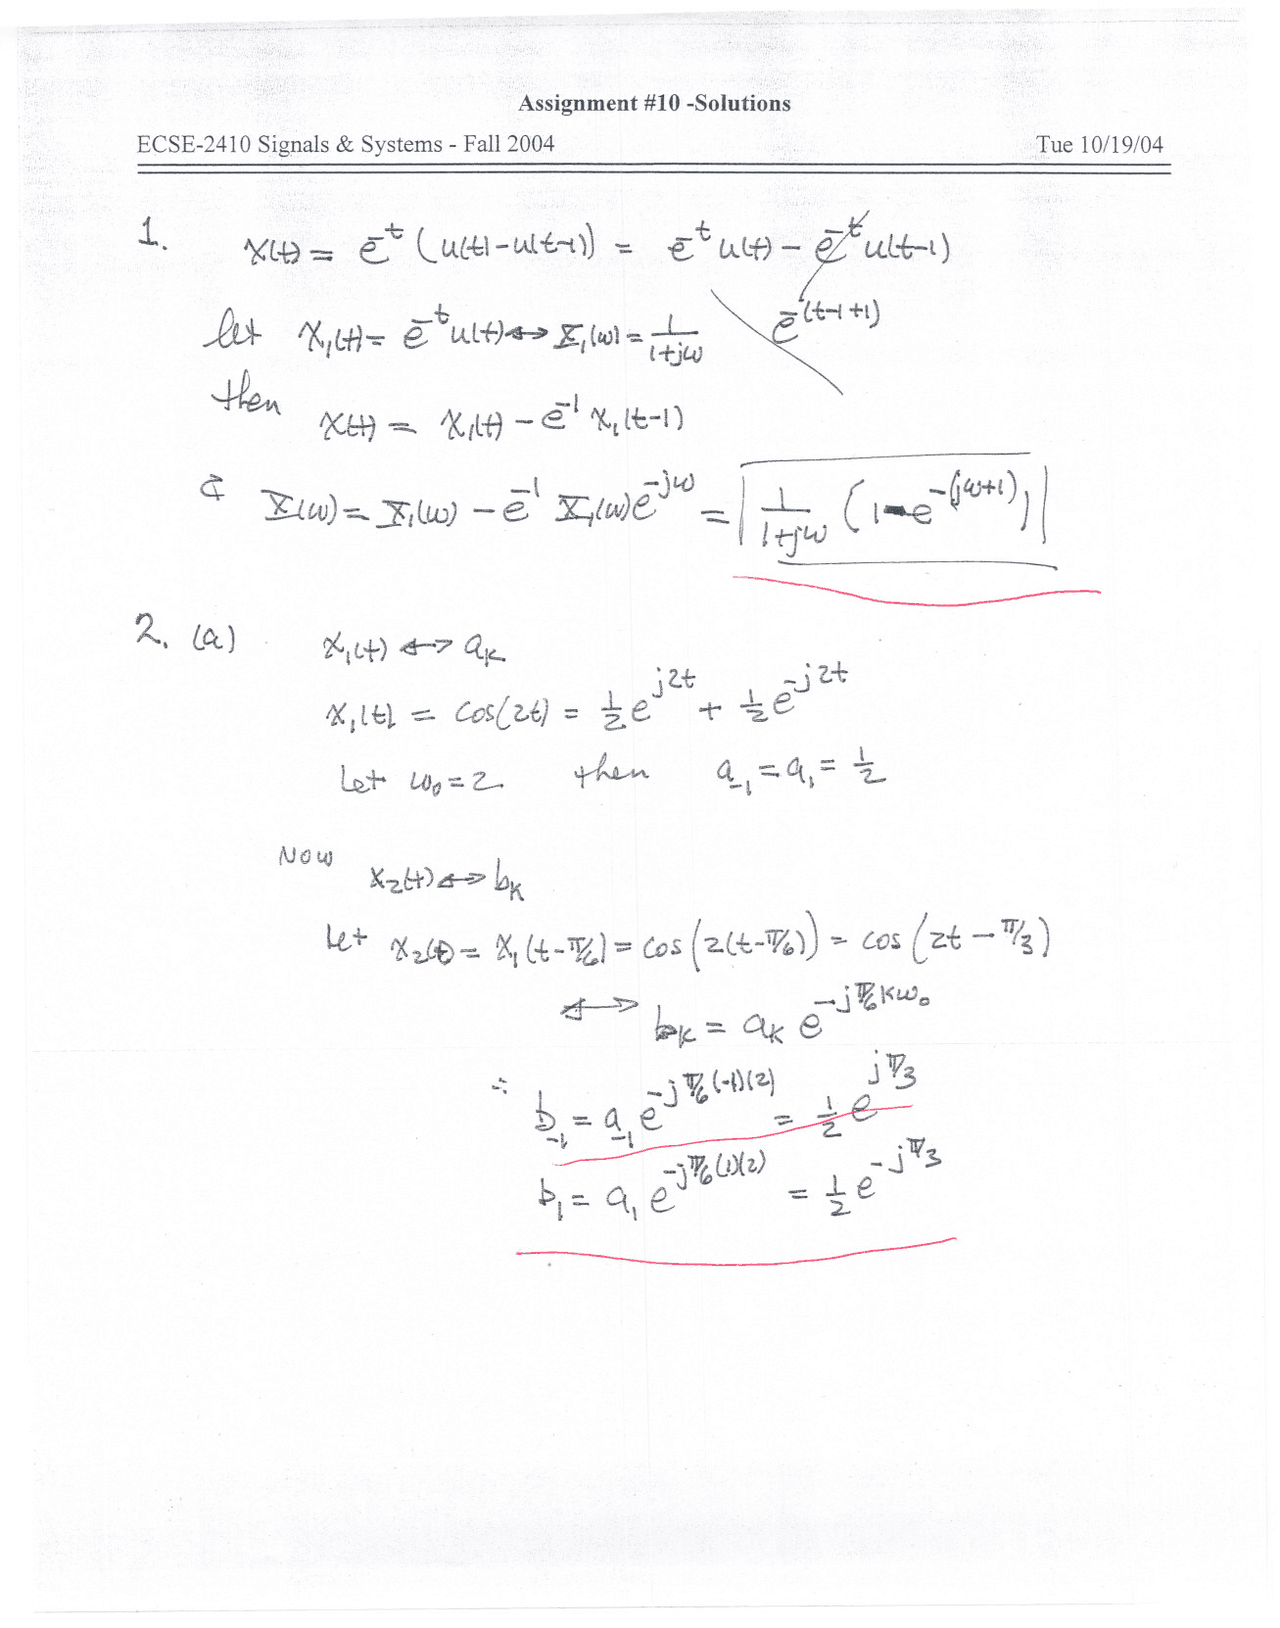 Assignment #10 -Solutions
ECSE-2410 Signals & Systems - Fall 2004 Tue 10/19/04
1. x(t) = e^-t (u(t)-u(t-1)) = e^-t u(t) - e^-t u(t-1)
e^-(t-1+1)
let x₁(t) = e^-t u(t) ↔ X₁(ω) = 1/(1+jω)
then
x(t) = x₁(t) - e^-1 x₁(t-1)
& X(ω) = X₁(ω) - e^-1 X₁(ω) e^-jω = 1/(1+jω) (1-e^-(jω+1))
2. (a) x₁(t) ↔ a_k
x₁(t) = cos(2t) = 1/2 e^j2t + 1/2 e^-j2t
Let ω₀ = 2 then a₋₁ = a₁ = 1/2
Now
x₂(t) ↔ b_k
Let x₂(t) = x₁(t-π/6) = cos(2(t-π/6)) = cos(2t - π/3)
↔ b_k = a_k e^-jπ/6 kω₀
∴ b₋₁ = a₋₁ e^-jπ/6(-1)(2) = 1/2 e^jπ/3
b₁ = a₁ e^-jπ/6(1)(2) = 1/2 e^-jπ/3